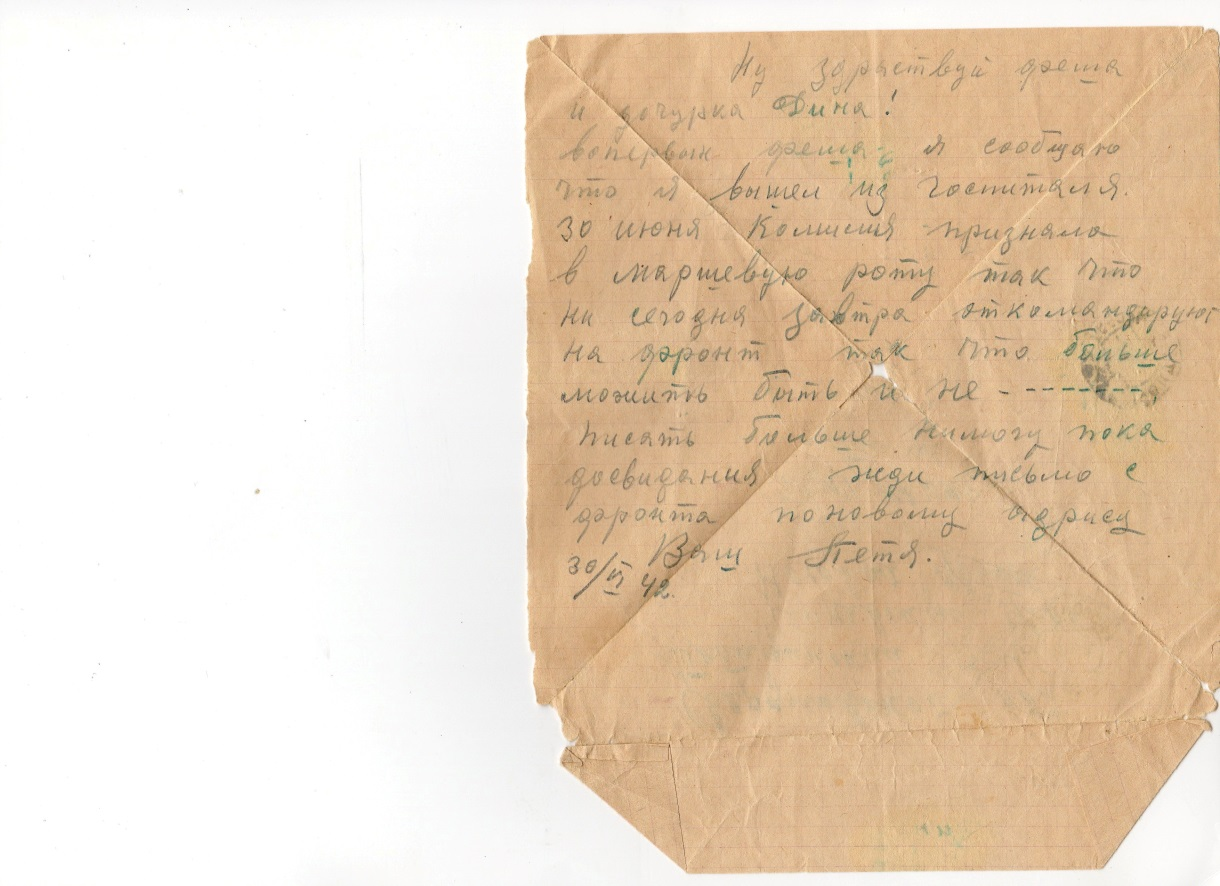 Ну здраствуй феша
и дочурка Дина!
вопервых феша я сообщаю
что я вышел из госпиталя.
30 июня Комисия признала
в маршевую роту так что
ни сегодня завтра откомандируют
на фронт так что больше
можить быть и не - -------
писать больше нимогу пока
досвидания жди письмо с
фронта поновому адрису
Ваш Петя.
30/VI 42.